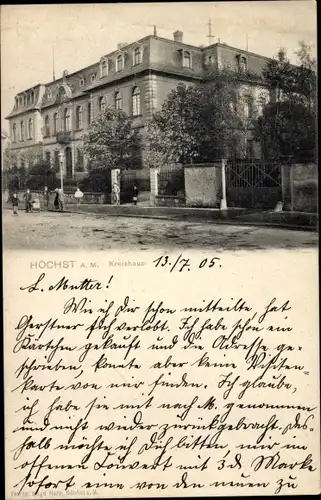 HÖCHST A. M. Kreishaus
13/7. 05.
L. Mutter!
Wie ich Dir schon mitteilte, hat
Gerstner sich verlobt. Ich habe schon ein
Kärtchen gekauft und die Adresse ge-
schrieben, konnte aber keine Visiten-
karte von mir finden. Ich glaube,
ich habe sie mit nach M. genommen
und nicht wieder zurückgebracht. Des-
halb möchte ich Dich bitten, mir im
offenen Couvert mit 3 d Marke
sofort eine von den neuen zu
Verlag: Höchst a. M.